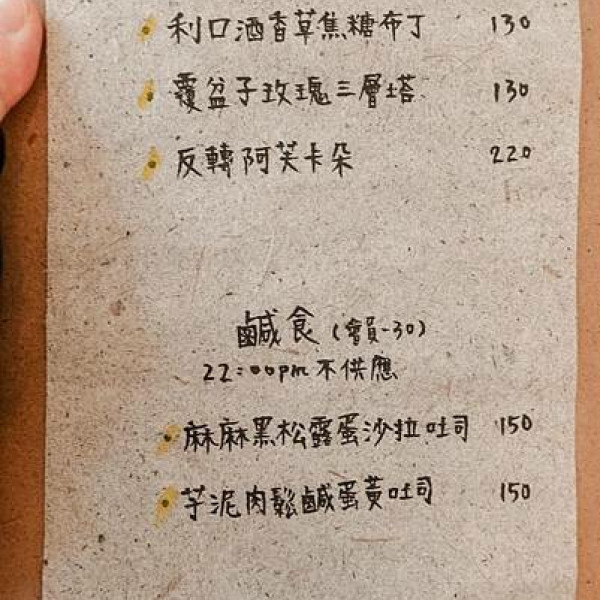 利口酒香草焦糖布丁 130
覆盆子玫瑰三層塔 130
反轉阿芙卡朵 220
鹹食(會員-30)
22:00pm 不供應
麻麻黑松露蛋沙拉吐司 150
芋泥肉鬆鹹蛋黃吐司 150